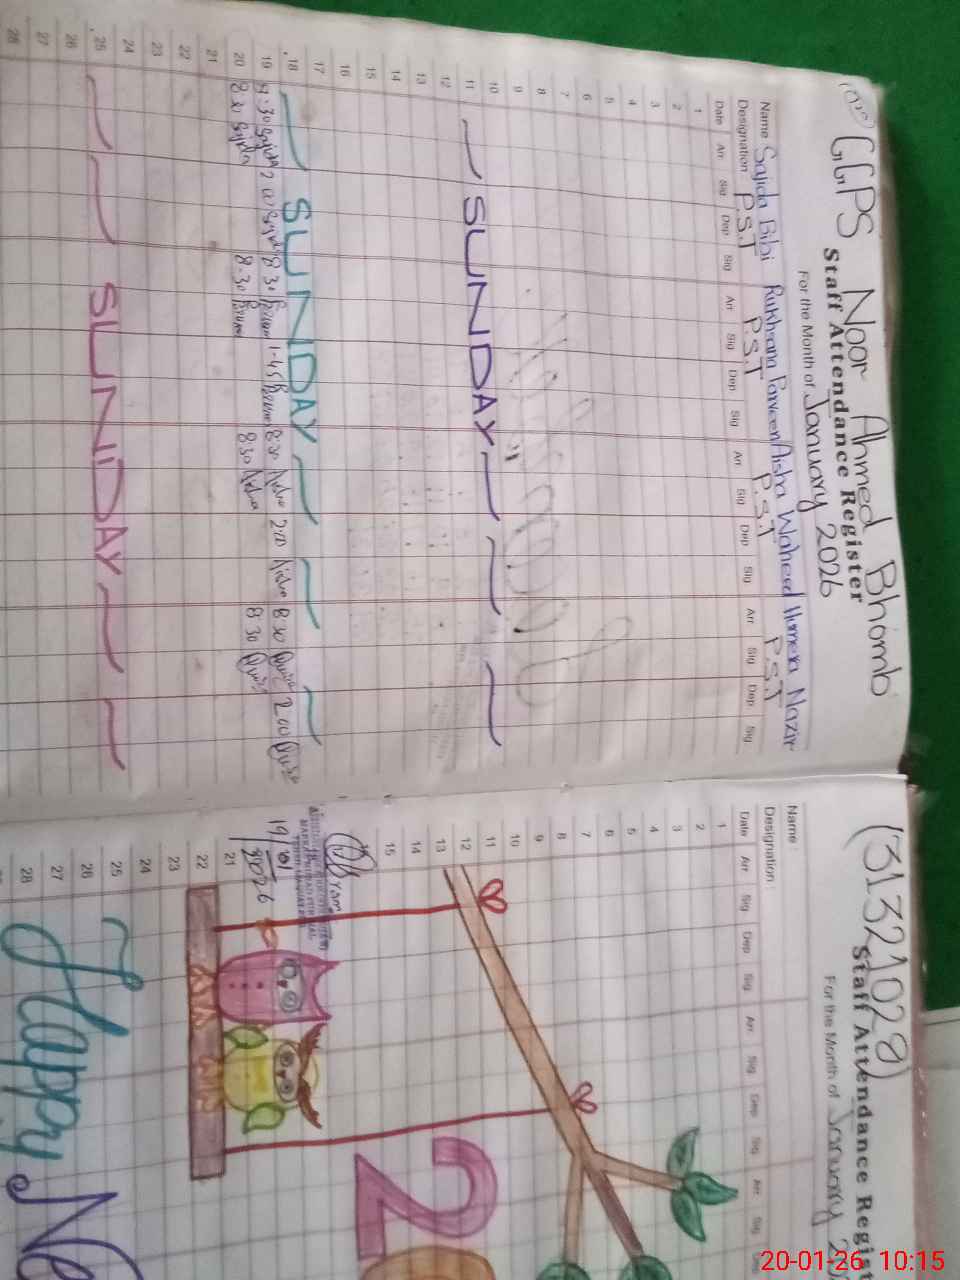 GGPS Noor Ahmed Bhomb
Staff Attendance Register
For the Month of January 2026
Name Sajida Bibi Rukhsana Parveen Aisha Waheed Humera Nazir
Designation P.S.T P.S.T P.S.T P.S.T
Date Arr Sig Dep Sig Arr Sig Dep Sig Arr Sig Dep Sig Arr Sig Dep Sig
1
2
3
4
5
6
7
8
9
10
11 SUNDAY
12
13
14
15
16
17
18 SUNDAY
19 8:30 Sajida 2:00 Sajida 8:30 1-45 8:30 2:00 8:30 2:00
20 8:30 Sajida 8-30 8:30 8:30
21
22
23
24
25 SUNDAY
26
27
28
(31321028)
Staff Attendance Regist
For the Month of January 2
Name :
Designation :
Date Arr Sig Dep Sig Arr Sig Dep Sig Arr Sig
1
2
3
4
5
6
7
8
9
10
11
12
13
14
15
19/01/2026
21
22
23
24
25
26
27
28
20
Happy Ne
20-01-26 10:15